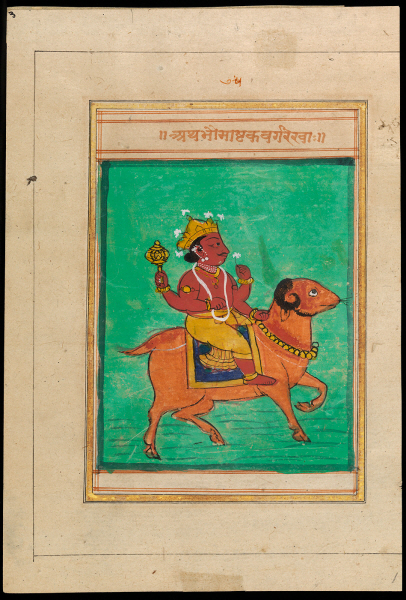 ७५
॥अथभौमाष्टकवर्गरेखाः॥